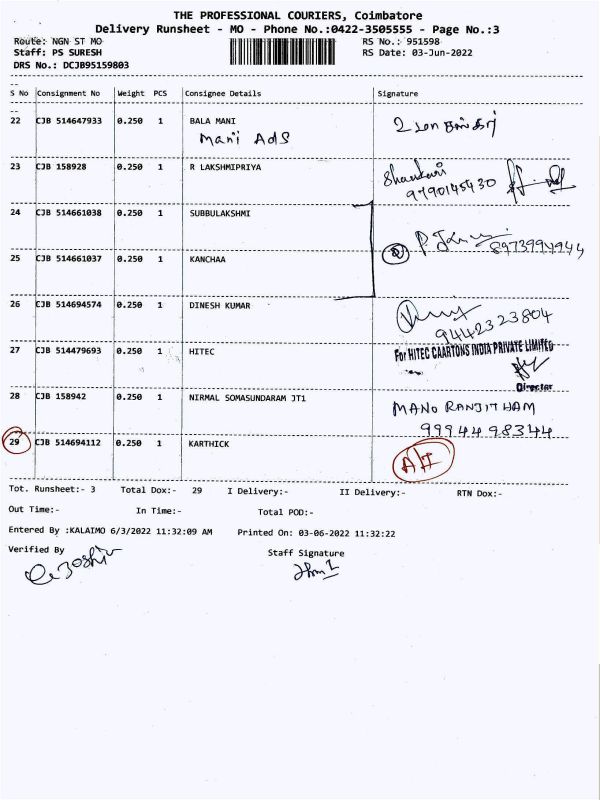 THE PROFESSIONAL COURIERS, Coimbatore
Delivery Runsheet - MO - Phone No.:0422-3505555 - Page No.:3
Route: NGN ST MO
RS No.: 951598
Staff: PS SURESH
RS Date: 03-Jun-2022
DRS No.: DCJB95159803
S No Consignment No Weight PCS Consignee Details Signature
22 CJB 514647933 0.250 1 BALA MANI
Mani Ads
23 CJB 158928 0.250 1 R LAKSHMIPRIYA
9790145430
24 CJB 514661038 0.250 1 SUBBULAKSHMI
8973994944
25 CJB 514661037 0.250 1 KANCHAA
26 CJB 514694574 0.250 1 DINESH KUMAR
9442323804
27 CJB 514479693 0.250 1 HITEC For HITEC CAARTONS INDIA PRIVATE LIMITED
Director
28 CJB 158942 0.250 1 NIRMAL SOMASUNDARAM JT1 MANO RANJITHAM
9994498344
29 CJB 514694112 0.250 1 KARTHICK
Tot. Runsheet:- 3 Total Dox:- 29 I Delivery:- II Delivery:- RTN Dox:-
Out Time:- In Time:- Total POD:-
Entered By :KALAIMO 6/3/2022 11:32:09 AM Printed On: 03-06-2022 11:32:22
Verified By Staff Signature